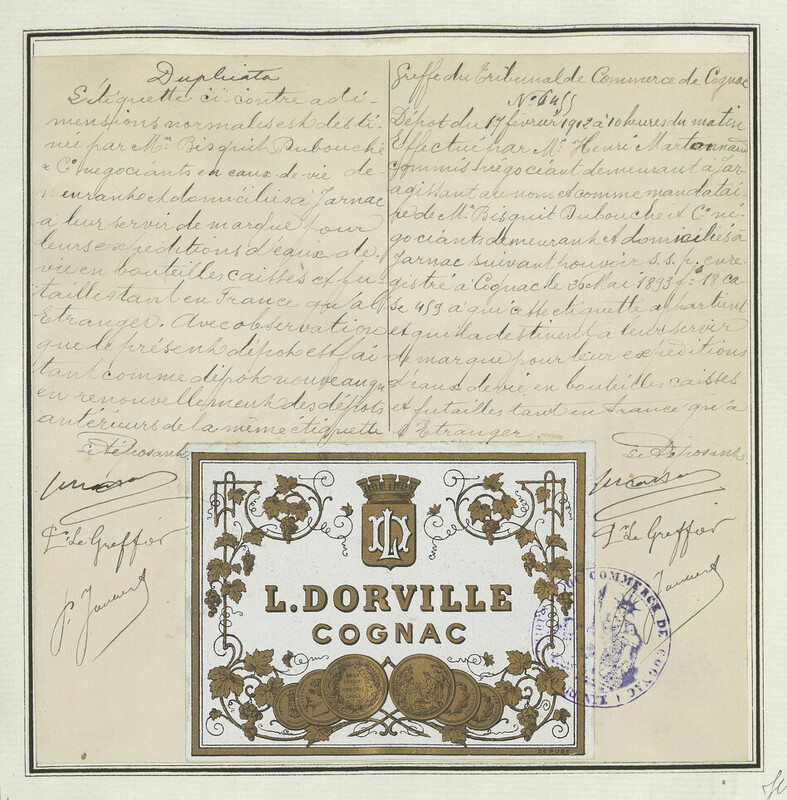 Duplicata
L'étiquette ci contre a di-
mensions normales est desti-
née par Mrs Bisquit Dubouché
& Co négociants en eaux-de-vie de-
meurant et domiciliés à Jarnac
à leur servir de marque pour
leurs expéditions d'eaux de-
vie en bouteilles caisses et fu-
tailles tant en France qu'à l'
Etranger. Avec observation
que le présent dépôt est fai
tant comme dépôt nouveau qu
en renouvellement des dépôts
antérieurs de la même etiquette
Le Déposant
Pr le Greffier
Greffe du Tribunal de Commerce de Cognac
No 6455
Dépôt du 17 février 1912 à 10 heures du matin
Effectué par Mr Henri Martonnaud
Commis négociant demeurant à Jar-
agissant au nom et comme mandatai-
re de Mrs Bisquit Dubouché et Co né-
gociants demeurant et domiciliés à
Jarnac suivant pouvoir s.s.p. enre-
gistré à Cognac le Mai 1893 fo 18 ca-
se 459 à qui cette etiquette appartient
et qui la destinent a leur servir
d marque pour leur expéditions
d'eaux de vie en bouteilles caisses
et futailles tant en France qu'a
l'Etranger.
Le Déposant
Pr le Greffier
L. DORVILLE
COGNAC
DEPOSE
DE COMMERCE DE COGNAC